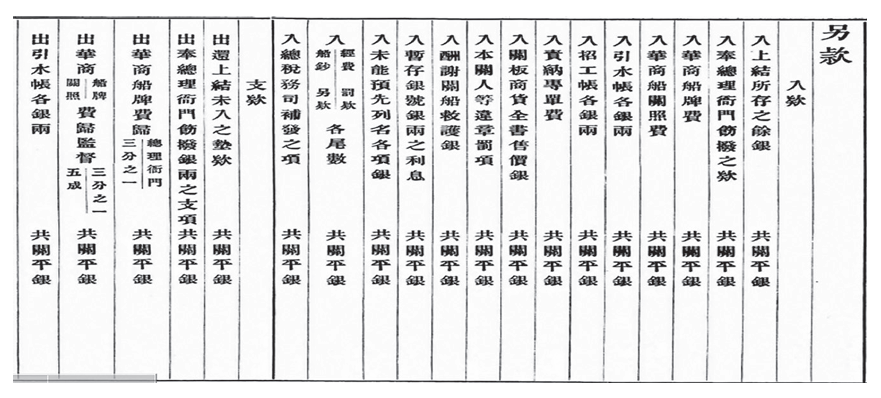 另款
入欵
入上結所存之餘銀 共關平銀
入奉總理衙門飭撥之欵 共關平銀
入華商船牌費 共關平銀
入華商船關照費 共關平銀
入引水帳各銀兩 共關平銀
入招工帳各銀兩 共關平銀
入賣納專單費 共關平銀
入關板商貨全書售價銀 共關平銀
入本關人等違章罰項 共關平銀
入酬謝關船救護銀 共關平銀
入暫存銀號銀兩之利息 共關平銀
入未能預先列名各項銀 共關平銀
入經費 罰欵 船鈔 另欵 各尾數 共關平銀
入總稅務司補發之項 共關平銀
支欵
出還上結未入之墊欵 共關平銀
出奉總理衙門飭撥銀兩之支項 共關平銀
出華商船牌費歸 總理衙門 三分之一 共關平銀
出華商 船牌 關照 費歸監督 三分之一 五成 共關平銀
出引水帳各銀兩 共關平銀